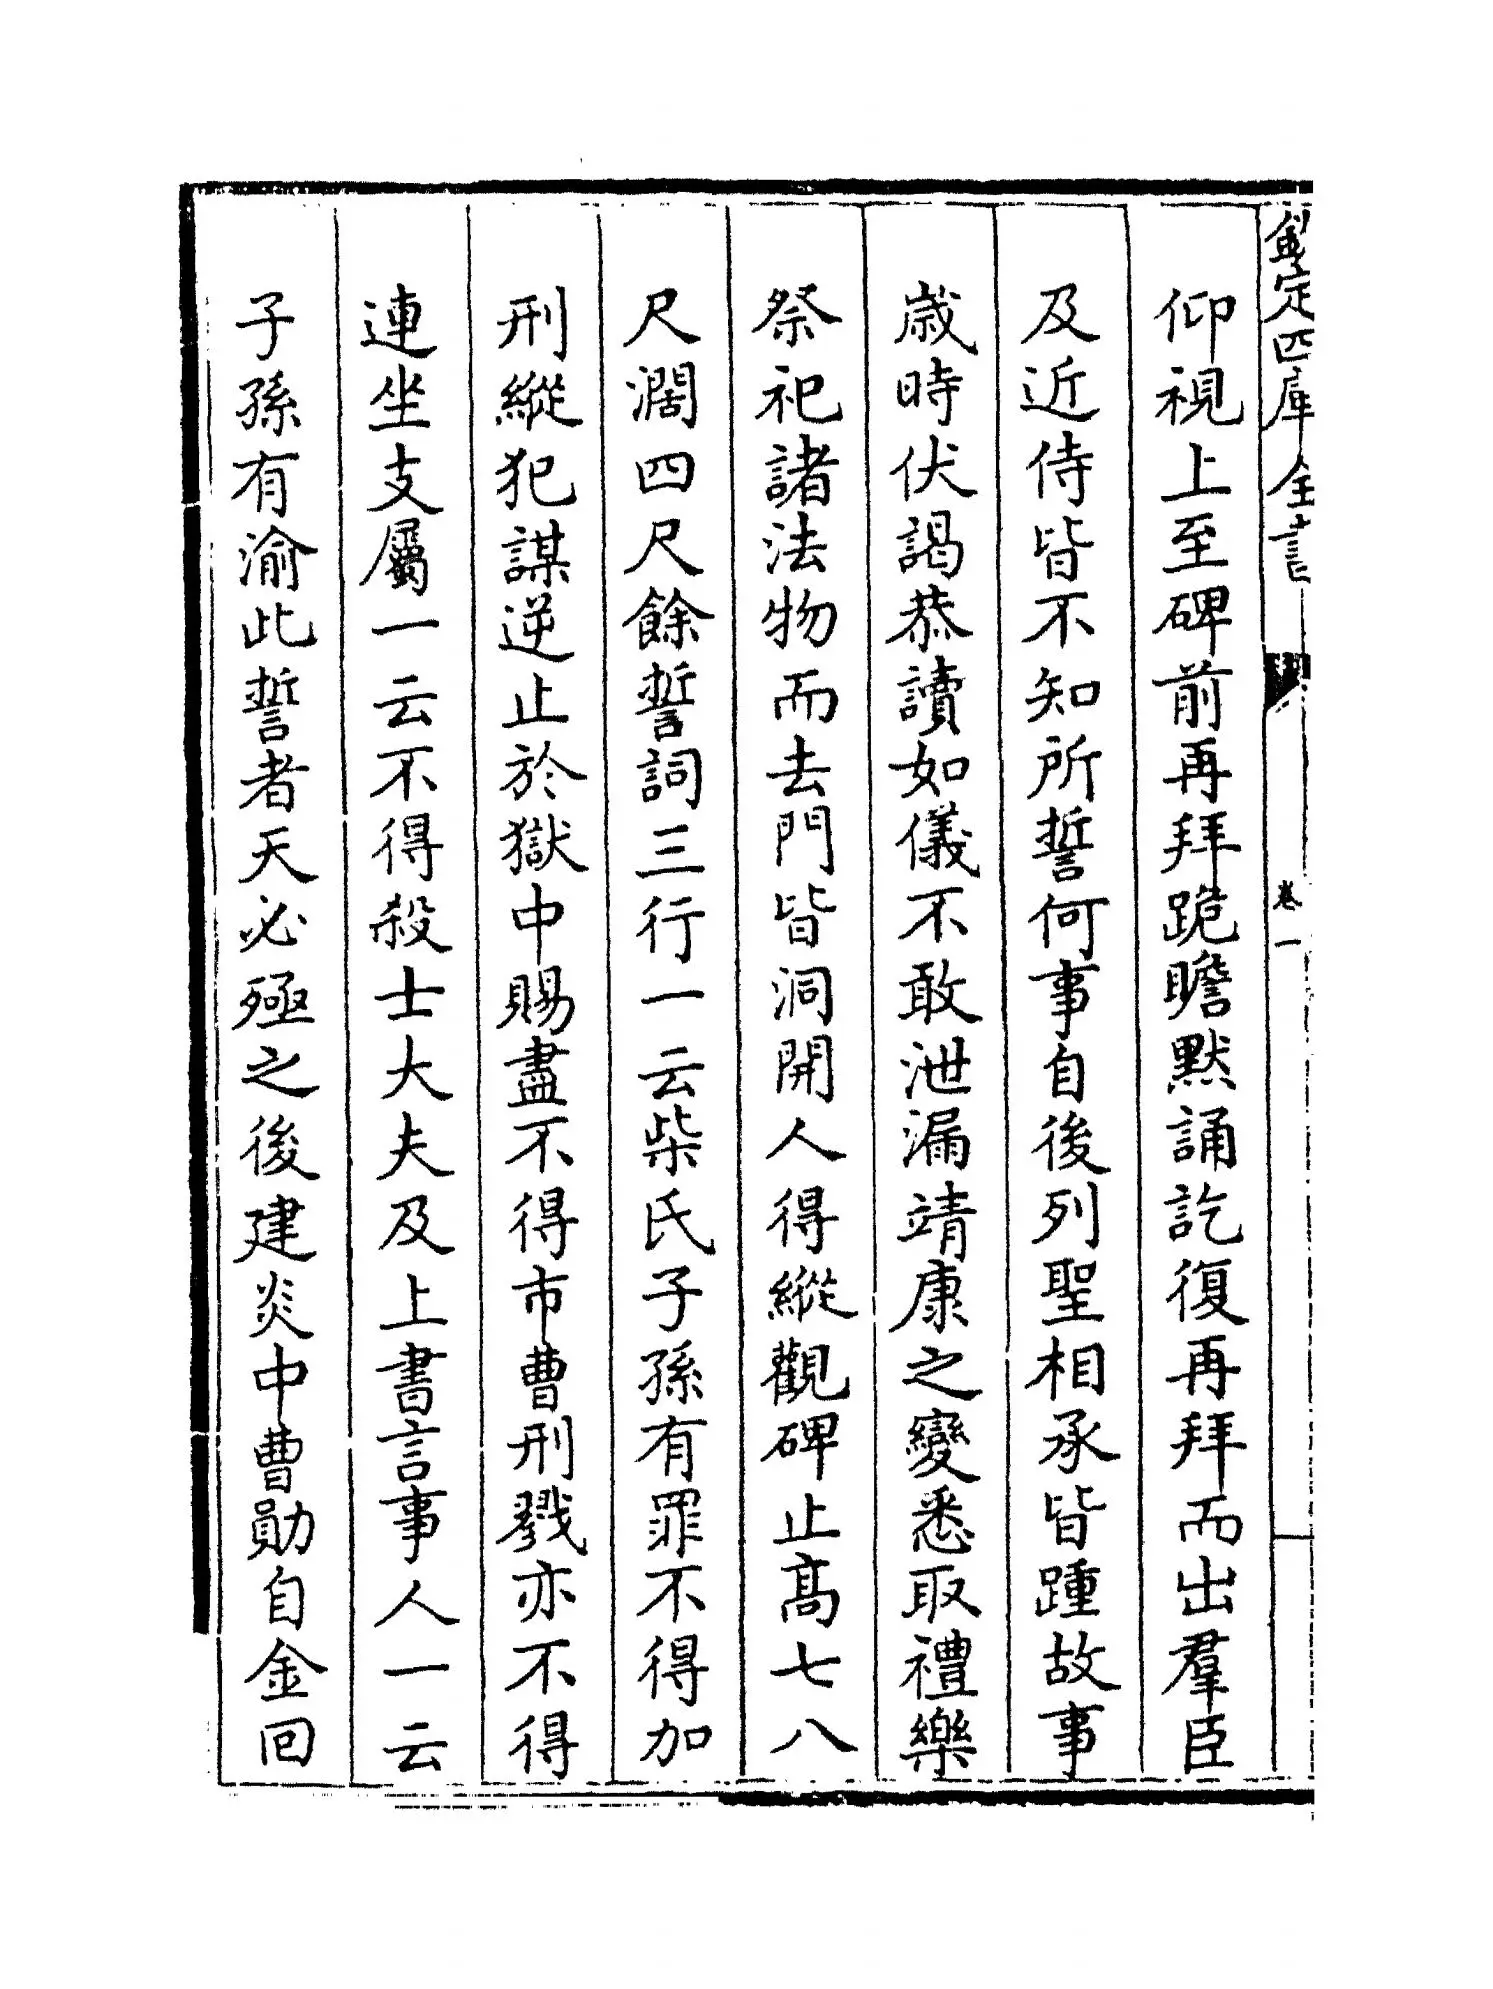 欽定四庫全書
卷一
仰視上至碑前再拜跪瞻默誦訖復再拜而出羣臣
及近侍皆不知所誓何事自後列聖相承皆踵故事
歳時伏謁恭讀如儀不敢泄漏靖康之變悉取禮樂
祭祀諸法物而去門皆洞開人得縱觀碑止髙七八
尺濶四尺餘誓詞三行一云柴氏子孫有罪不得加
刑縱犯謀逆止於獄中賜盡不得市曹刑戮亦不得
連坐支屬一云不得殺士大夫及上書言事人一云
子孫有渝此誓者天必殛之後建炎中曹勛自金回